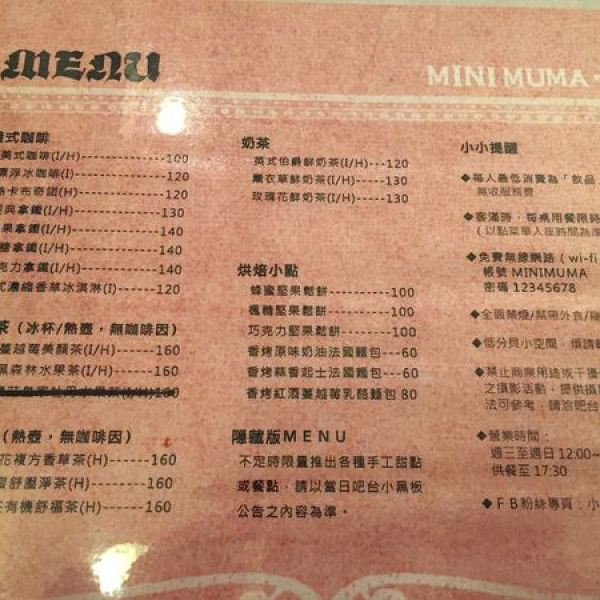 MENU
MINI MUMA
式咖啡
美式咖啡(I/H)--------------100
漂浮冰咖啡(I)--------------120
熱卡布奇諾(H)--------------120
經典拿鐵(I/H)--------------130
果拿鐵(I/H)--------------140
糖拿鐵(I/H)--------------140
克力拿鐵(I/H)------------140
式濃縮香草冰淇淋(I)------120
茶（冰杯/熱壺，無咖啡因）
蔓越莓美顏茶(I/H)------160
黑森林水果茶(I/H)------160
（熱壺，無咖啡因）
花複方香草茶(H)------160
舒壓淨茶(H)------160
有機舒福茶(H)------160
奶茶
英式伯爵鮮奶茶(I/H)---120
薰衣草鮮奶茶(I/H)-----130
玫瑰花鮮奶茶(I/H)-----130
烘焙小點
蜂蜜堅果鬆餅----------100
楓糖堅果鬆餅----------100
巧克力堅果鬆餅--------100
香烤原味奶油法國麵包---60
香烤蒜香起士法國麵包---60
香烤紅酒蔓越莓乳酪麵包 80
隱藏版MENU
不定時限量推出各種手工甜點
或餐點，請以當日吧台小黑板
公告之內容為準。
小小提醒
◆每人最低消費為「飲品
無收服務費
◆客滿時，每桌用餐限時
（以點菜單入座時間為準
◆免費無線網路（wi-fi
帳號 MINIMUMA
密碼 12345678
◆全面禁煙/禁帶外食/
◆低分貝小空間，煩請
◆禁止商業用途或干擾
之攝影活動，提供攝
法可參考，請洽吧台
◆營業時間：
週三至週日 12:00~
供餐至 17:30
◆FB粉絲專頁：小